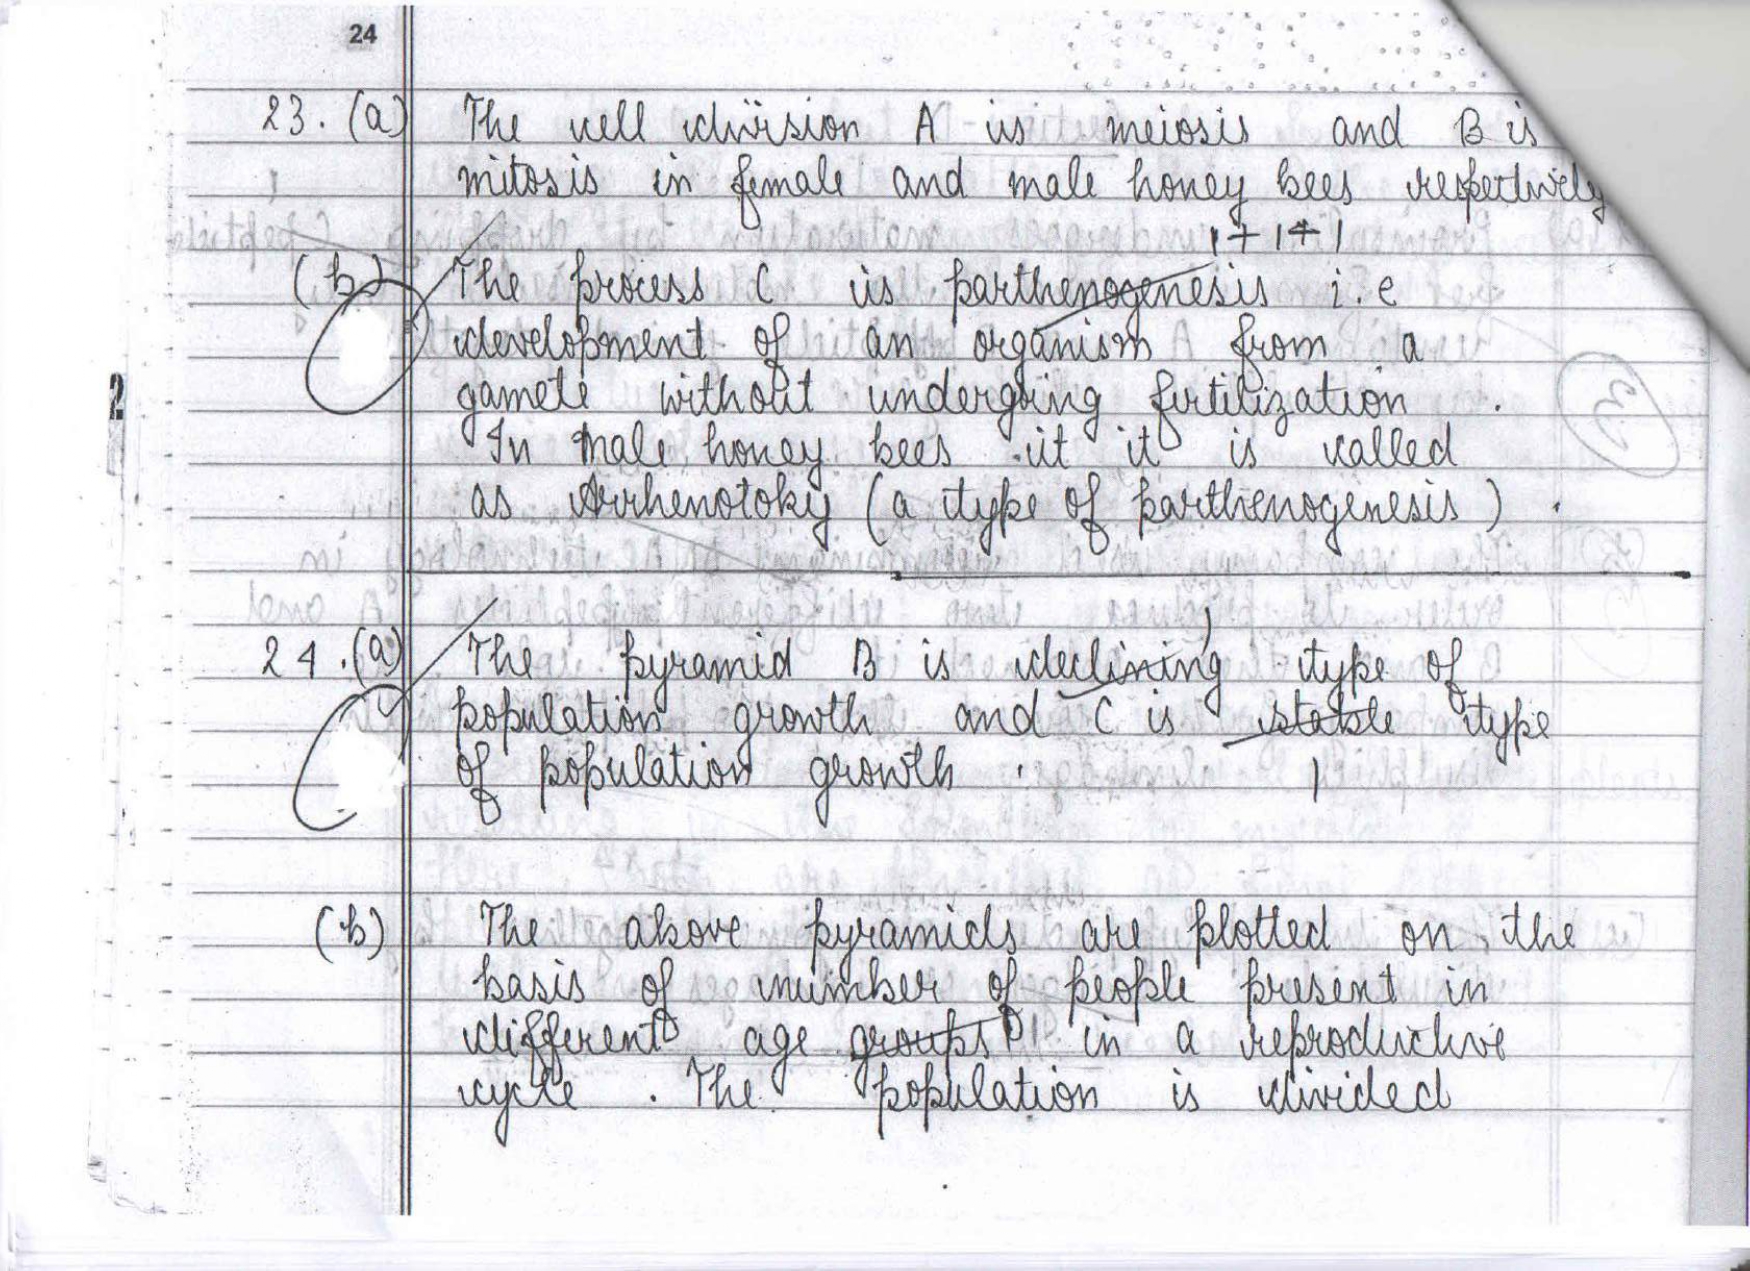 24
23. (a) The cell division A is meiosis and B is
mitosis in female and male honey bees respectively
1 + 1 + 1
(b) The process C is parthenogenesis i.e
development of an organism from a
gamete without undergoing fertilization .
In male honey bees it it is called
as Arrhenotoky (a type of parthenogenesis) .
2
24. (a) The pyramid B is declining type of
population growth and C is stable type
of population growth .
1
(b) The above pyramids are plotted on the
basis of number of people present in
different age groups in a reproductive
cycle . The population is divided